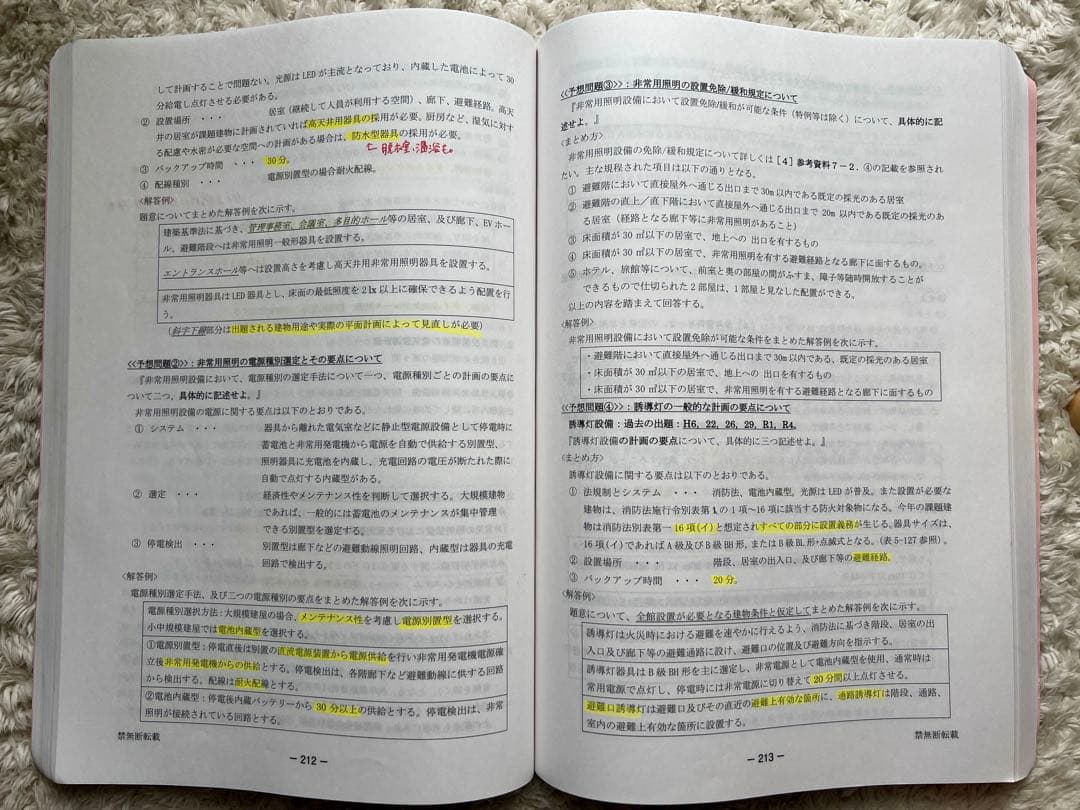 して計画することで問題ない。光源は LED が主流となっており、内蔵した電池によって 30
分給電し点灯させる必要がある。
② 設置場所 ・・・ 居室（継続して人員が利用する空間）、廊下、避難経路。高天
井の居室が課題建物に計画されていれば高天井用器具の採用が必要。厨房など、湿気に対す
る配慮や水密が必要な空間への計画がある場合は、防水型器具の採用が必要。
③ バックアップ時間 ・・・ 30分。
④ 配線種別 ・・・ 電源別置型の場合耐火配線。
〈解答例〉
題意についてまとめた解答例を次に示す。
建築基準法に基づき、管理事務室、会議室、多目的ホール等の居室、及び廊下、EV ホー
ル、避難階段へは非常用照明一般形器具を設置する。
エントランスホール等へは設置高さを考慮し高天井用非常用照明器具を設置する。
非常用照明器具は LED 器具とし、床面の最低照度を 2 lx 以上に確保できるよう配置を行
う。
（斜字下線部分は出題される建物用途や実際の平面計画によって見直しが必要）
《予想問題②》：非常用照明の電源種別選定とその要点について
『非常用照明設備において、電源種別の選定手法について一つ、電源種別ごとの計画の要点に
ついて二つ、具体的に記述せよ。』
非常用照明設備の電源に関する要点は以下のとおりである。
① システム ・・・ 器具から離れた電気室などに静止型電源設備として停電時に
蓄電池と非常用発電機から電源を自動で供給する別置型、
照明器具に充電池を内蔵し、充電回路の電圧が断たれた際に
自動で点灯する内蔵型がある。
② 選定 ・・・ 経済性やメンテナンス性を判断して選択する。大規模建物
であれば、一般的には蓄電池のメンテナンスが集中管理
できる別置型を選定する。
③ 停電検出 ・・・ 別置型は廊下などの避難動線照明回路、内蔵型は器具の充電
回路で検出する。
〈解答例〉
電源種別選定手法、及び二つの電源種別の要点をまとめた解答例を次に示す。
電源種別選定方法：大規模建屋の場合、メンテナンス性を考慮し電源別置型を選択する。
小中規模建屋では電池内蔵型を選択する。
①電源別置型：停電直後は別置の直流電源装置から電源供給を行い非常用発電機電源確
立後非常用発電機からの供給とする。停電検出は、各階廊下など避難動線に供する回路
から検出する。配線は耐火配線とする。
②電池内蔵型：停電後内蔵バッテリーから 30 分以上の供給とする。停電検出は、非常
照明が接続されている回路とする。
禁無断転載
－ 212 －
《予想問題③》：非常用照明の設置免除/緩和規定について
『非常用照明設備において設置免除/緩和が可能な条件（特例等は除く）について、具体的に記
述せよ。』
〈まとめ方〉
非常用照明設備の免除/緩和規定について詳しくは［4］参考資料7－2．④の記載を参照され
たい。主な規程された項目は以下の通りとなる。
① 避難階において直接屋外へ通じる出口まで 30m 以内である既定の採光のある居室
② 避難階の直上／直下階において直接屋外へ通じる出口まで 20m 以内である既定の採光のあ
る居室（経路となる廊下等に非常用照明があること）
③ 床面積が 30 ㎡以下の居室で、地上への 出口を有するもの
④ 床面積が 30 ㎡以下の居室で、非常用照明を有する避難経路となる廊下に面するもの。
⑤ ホテル、旅館等について、前室と奥の部屋の間がふすま、障子等随時開放することが
できるもので仕切られた 2 部屋は、1 部屋と見なした配置ができる。
以上の内容を踏まえて回答する。
〈解答例〉
非常用照明設備において設置免除が可能な条件をまとめた解答例を次に示す。
・避難階において直接屋外へ通じる出口まで 30m 以内である、既定の採光のある居室
・床面積が 30 ㎡以下の居室で、地上への 出口を有するもの
・床面積が 30 ㎡以下の居室で、非常用照明を有する避難経路となる廊下に面するもの
《予想問題④》：誘導灯の一般的な計画の要点について
誘導灯設備：過去の出題：H6, 22, 26, 29, R1, R4,
『誘導灯設備の計画の要点について、具体的に三つ記述せよ。』
〈まとめ方〉
誘導灯設備に関する要点は以下のとおりである。
① 法規制とシステム ・・・ 消防法、電池内蔵型。光源は LED が普及。また設置が必要な
建物は、消防法施行令別表第1の 1 項～16 項に該当する防火対象物になる。今年の課題建
物は消防法別表第一 16 項(イ)と想定されすべての部分に設置義務が生じる。器具サイズは、
16 項(イ)であれば A 級及び B 級 BH 形、または B 級 BL 形+点滅式となる。(表5-127 参照)。
② 設置場所 ・・・ 階段、居室の出入口、及び廊下等の避難経路。
③ バックアップ時間 ・・・ 20分。
〈解答例〉
題意について、全館設置が必要となる建物条件と仮定してまとめた解答例を次に示す。
誘導灯は火災時における避難を速やかに行えるよう、消防法に基づき階段、居室の出
入口及び廊下等の避難通路に設け、避難口の位置及び避難方向を指示する。
誘導灯器具は B 級 BH 形を主に選定し、非常電源として電池内蔵型を使用、通常時は
常用電源で点灯し、停電時には非常電源に切り替えて 20 分間以上点灯させる。
避難口誘導灯は避難口及びその直近の避難上有効な箇所に、通路誘導灯は階段、通路、
室内の避難上有効な箇所に設置する。
禁無断転載
－ 213 －